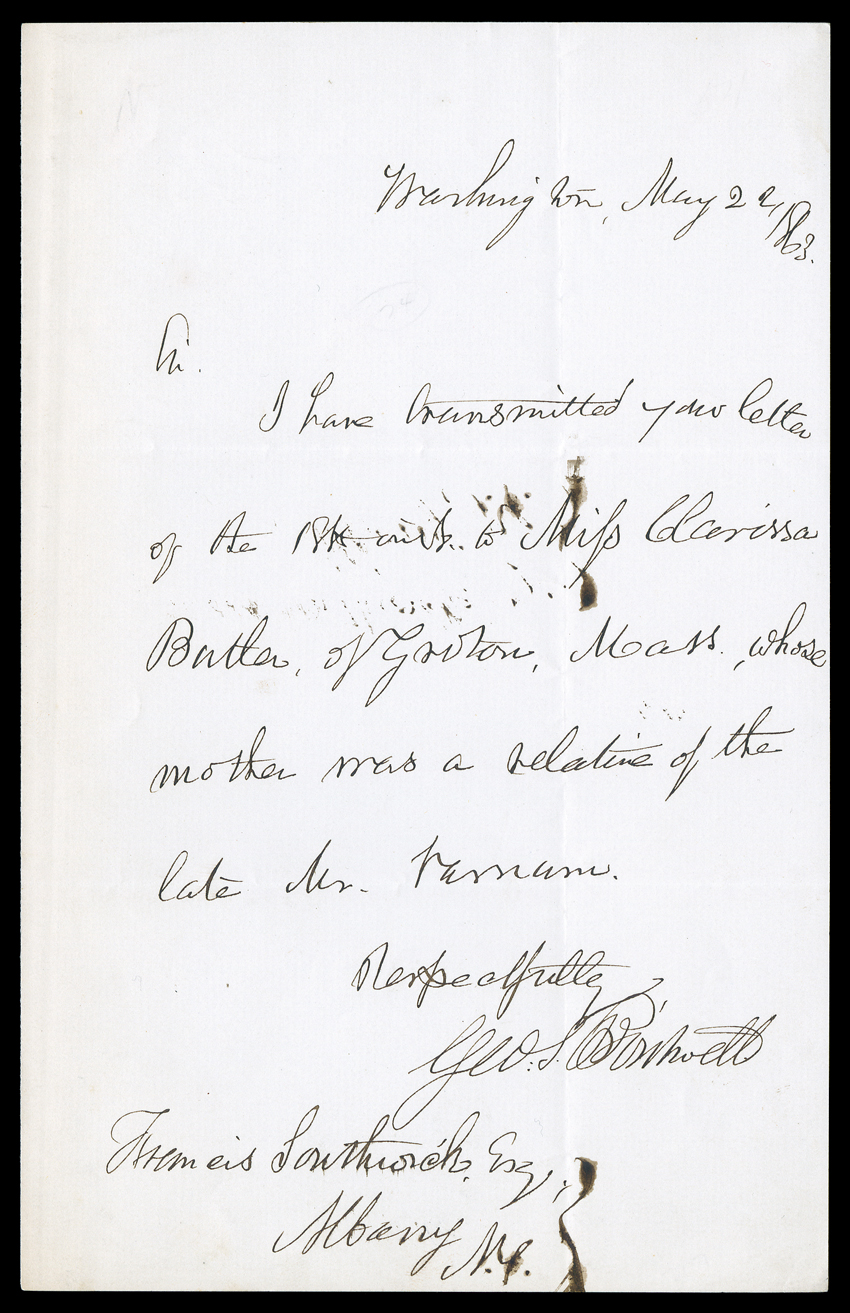 Washington, May 22, 1863.
Sir.
I have transmitted your letter
of the 18th inst. to Miss Clarissa
Butler, of Groton, Mass., whose
mother was a relative of the
late Mr. Varnum.
Respectfully
Geo. S. Boutwell
Francis Southwick, Esq.,
Albany
N.Y.